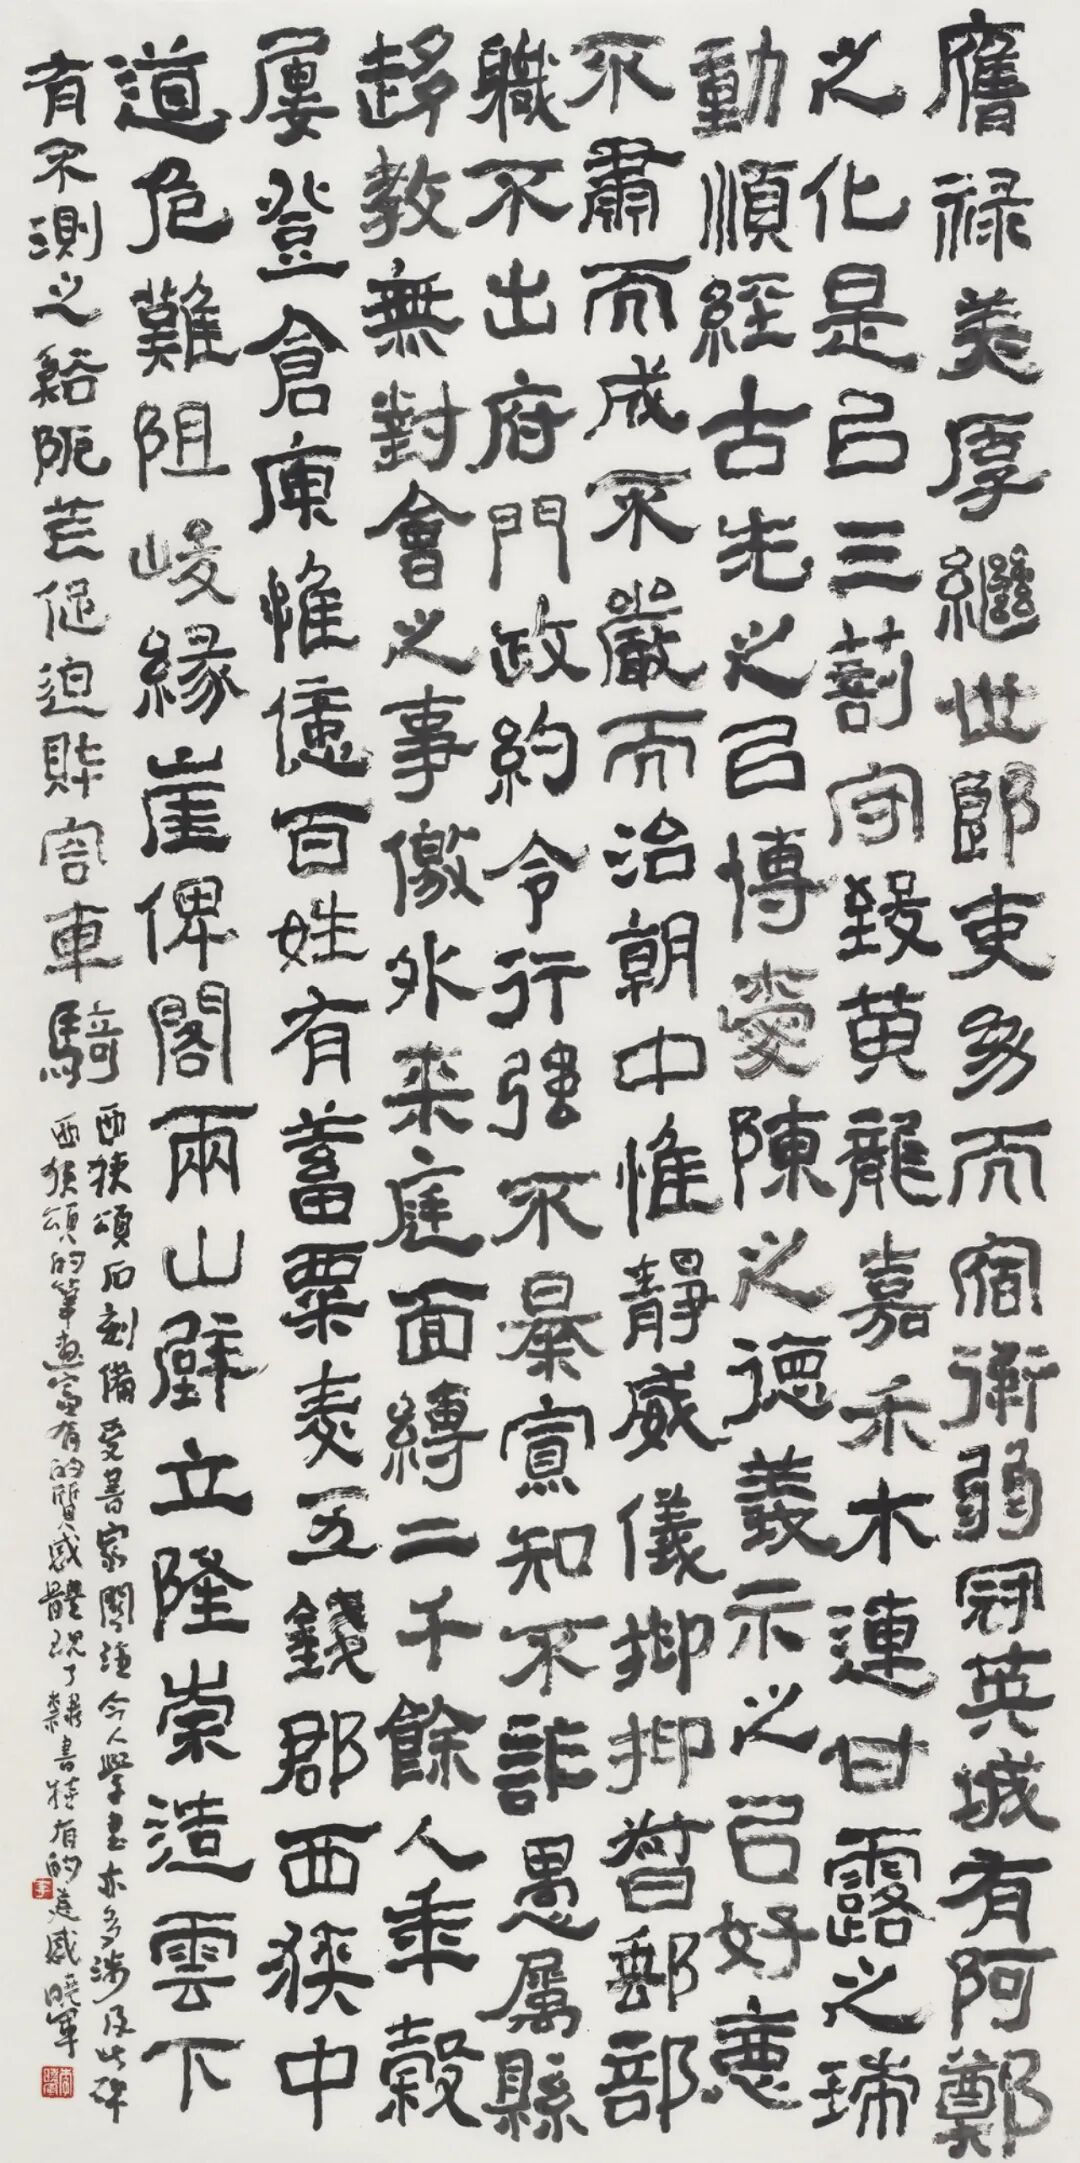 膺祿美厚繼世郎吏幼而宿衛弱冠英城有阿鄭
之化是㠯三剖守致黃龍嘉禾木連甘露之瑞
動順經古先之㠯博愛陳之德義示之㠯好惡
不肅而成不嚴而治朝中惟靜威儀抑抑督郵部
職不出府門政約令行強不暴寡知不詐愚屬縣
趍教無對會之事儌外来庭面縛二千餘人年穀
屢登倉庾惟億百姓有蓄粟麦五錢郡西狹中
道危難阻峻緣崖俾閣兩山壁立隆崇造雲下
有不測之谿阨芒促迫財容車騎
西狹頌石刻備受書家關注今人學書亦多涉及此碑
西狹頌的筆畫富有的質感體現了隸書特有的美感曉軍